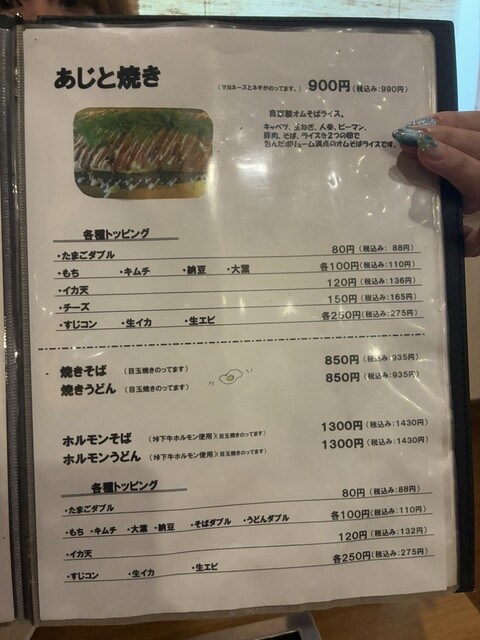 あじと焼き (マヨネーズとネギがのってます。) 900円(税込み:990円)
自家製オムそばライス。
キャベツ、玉ねぎ、人参、ピーマン、
豚肉、そば、ライスを2つの卵で
包んだボリューム満点のオムそばライスです。
各種トッピング
・たまごダブル 80円(税込み: 88円)
・もち ・キムチ ・納豆 ・大葉 各100円(税込み:110円)
・イカ天 120円(税込み:136円)
・チーズ 150円(税込み:165円)
・すじコン ・生イカ ・生エビ 各250円(税込み:275円)
焼きそば (目玉焼きのってます) 850円(税込み:935円)
焼きうどん (目玉焼きのってます) 850円(税込み:935円)
ホルモンそば (垰下牛ホルモン使用)(目玉焼きのってます) 1300円(税込み:1430円)
ホルモンうどん (垰下牛ホルモン使用)(目玉焼きのってます) 1300円(税込み:1430円)
各種トッピング
・たまごダブル 80円(税込み:88円)
・もち ・キムチ ・大葉 ・納豆 ・そばダブル ・うどんダブル 各100円(税込み:110円)
・イカ天 120円(税込み:132円)
・すじコン ・生イカ ・生エビ 各250円(税込み:275円)